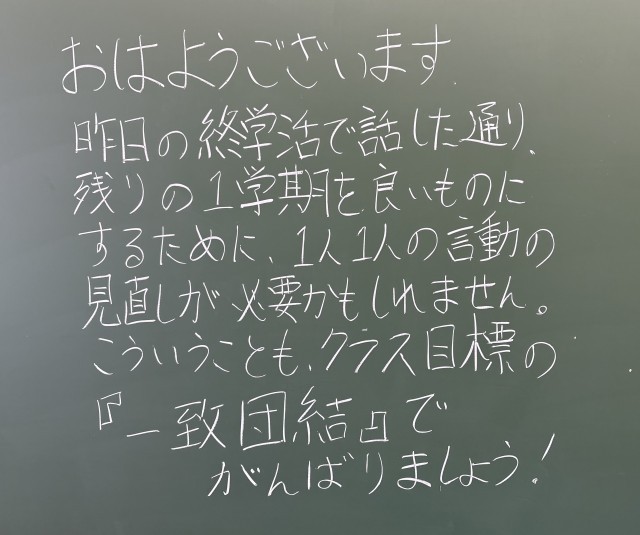 おはようございます.
昨日の終学活で話した通り、
残りの1学期を良いものに
するために、1人1人の言動の
見直しが必要かもしれません。
こういうことも、クラス目標の
『一致団結』で
がんばりましょう!